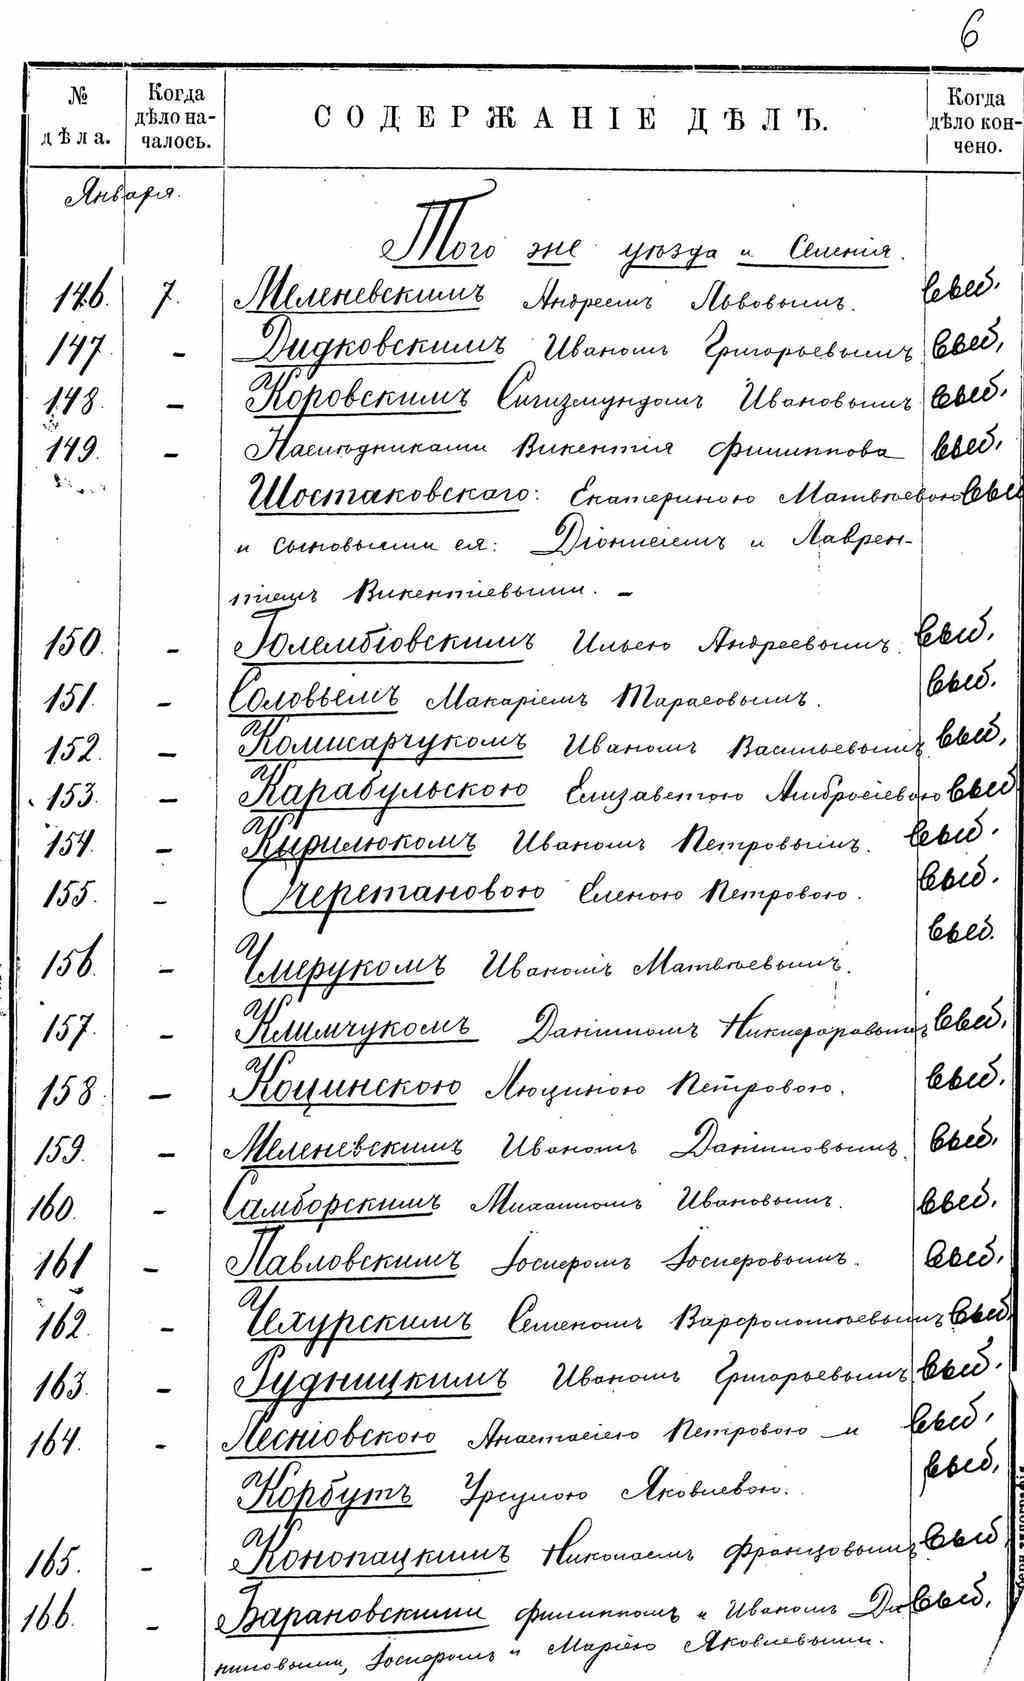 6
№ дѣла. Когда дѣло началось. СОДЕРЖАНІЕ ДѢЛЪ. Когда дѣло кончено.
Января.
Того же уѣзда и Селенія.
146. 7. Меленевскимъ Андреемъ Львовымъ. выб.
147. – Дидковскимъ Иваномъ Григорьевымъ выб.
148. – Коровскимъ Сигизмундомъ Ивановымъ выб.
149. – Наслѣдниками Викентія Филиппова выб.
Шостаковскаго: Екатериною Матвѣевою выб
и сыновьями ея: Діонисіемъ и Лаврен-
тіемъ Викентіевыми. –
150. – Голембіовскимъ Ильею Андреевымъ. выб.
151. – Соловьемъ Макаріемъ Тарасовымъ. выб.
152. – Комисарчукомъ Иваномъ Васильевымъ выб.
153. – Карабульскою Елизаветою Амбросіевою выб
154. – Кирилюкомъ Иваномъ Петровымъ. выб.
155. – Черетановою Еленою Петровою. выб.
выб.
156. – Чмерукомъ Иваномъ Матвѣевымъ.
157. – Климчукомъ Даніиломъ Никифоровымъ выб.
158. – Коцинскою Люциною Петровою. выб.
159. – Меленевскимъ Иваномъ Даніиловымъ. выб.
160. – Самборскимъ Михаиломъ Ивановымъ. выб.
161 – Павловскимъ Іосифомъ Іосифовымъ. выб.
162. – Чехурскимъ Семеномъ Варфоломѣевымъ выб.
163. – Рудницкимъ Иваномъ Григорьевымъ выб.
164. – Лесніовскою Анастасіею Петровою и выб.
Корбутъ Урсулою Яковлевою. выб.
165. – Конопацкимъ Николаемъ Францовымъ выб
166. – Барановскими Филиппомъ и Иваномъ Да- выб.
ниловыми, Іосифомъ и Маріею Яковлевыми.